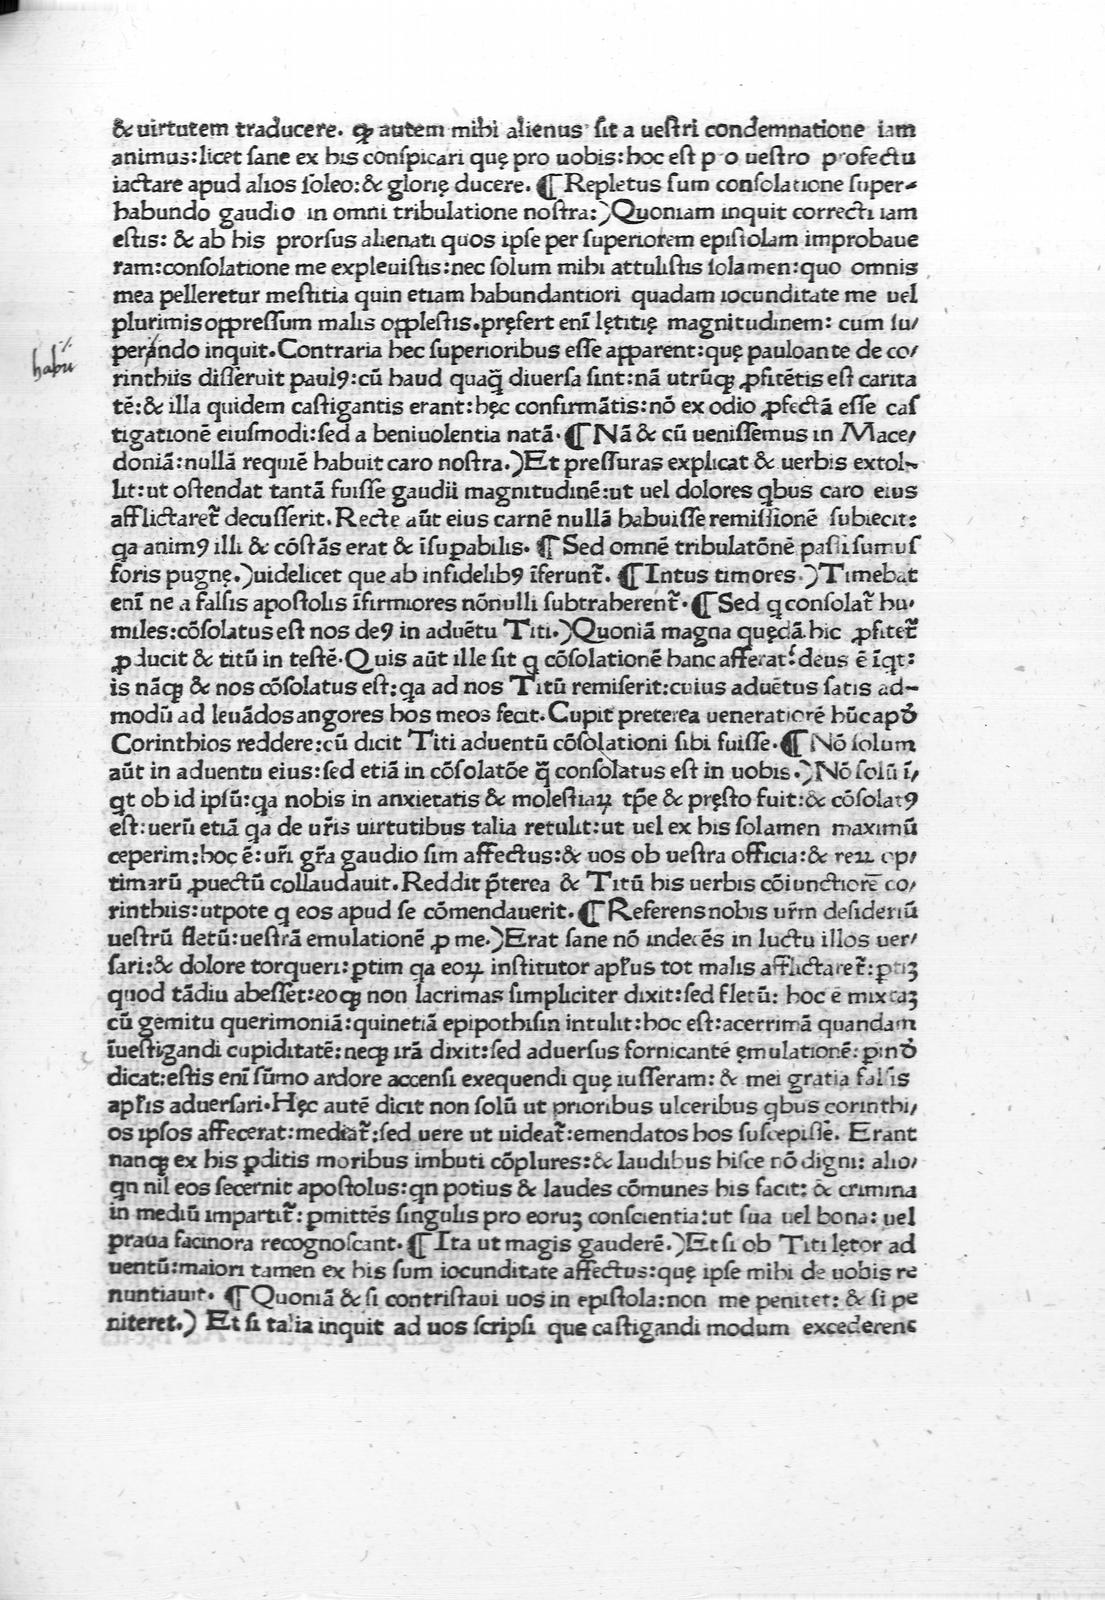 & uirtutem traducere. ꝙ autem mihi alienus sit a uestri condemnatione iam
animus:licet sane ex his conspicari quę pro uobis:hoc est p o uestro profectu
iactare apud alios soleo:& glorię ducere. ¶ Repletus sum consolatione super-
habundo gaudio in omni tribulatione nostra:)Quoniam inquit correcti iam
estis: & ab his prorsus alienati quos ipse per superiorem epistolam improbaue
ram:consolatione me expleuistis:nec solum mihi attulistis solamen:quo omnis
mea pelleretur mestitia quin etiam habundantiori quadam iocunditate me uel
plurimis oppressum malis opplestis.pręfert eni̅ lętitię magnitudinem: cum su/
perando inquit.Contraria hec superioribus esse apparent:quę pauloante de co/
habū
rinthiis disseruit paulꝰ:cū haud quaq̃ diuersa sint:nā utrūqꝫ ꝓfitētis est carita
tē:& illa quidem castigantis erant:hęc confirmātis:nō ex odio ꝓfectā esse cas
tigationē eiusmodi:sed a beniuolentia natā.¶ Nā & cū uenissemus in Mace/
doniā:nullā requiē habuit caro nostra.)Et pressuras explicat & uerbis extol-
lit:ut ostendat tantā fuisse gaudii magnitudinē:ut uel dolores qbus caro eius
afflictaret̃ decusserit.Recte aūt eius carnē nullā habuisse remissionē subiecit:
qa animꝰ illi & cōstās erat & īsuꝑabilis. ¶ Sed omnē tribulatōnē passi sumus
foris pugnę.)uidelicet que ab infidelibꝰ īferunt̃. ¶ Intus timores.)Timebat
enī ne a falsis apostolis īfirmiores nōnulli subtraherent̃.¶ Sed q consolat̃ hu/
miles:cōsolatus est nos deꝰ in aduētu Titi.)Quoniā magna quędā hic ꝓfitet̃
ꝓducit & titū in testē.Quis aūt ille sit q cōsolationē hanc afferat: deus ē īqt:
is nāqꝫ & nos cōsolatus est:qa ad nos Titū remiserit:cuius aduētus satis ad-
modū ad leuādos angores hos meos fecit.Cupit preterea ueneratiorē hūc apđ
Corinthios reddere:cū dicit Titi aduentū cōsolationi sibi fuisse.¶ Nō solum
aūt in aduentu eius:sed etiā in cōsolatōe q̃ consolatus est in uobis.)Nō solū ī/
qt ob id ipsū:qa nobis in anxietatis & molestiaꝝ tp̄e & pręsto fuit:& cōsolatꝰ
est:uerū etiā qa de ur̄is uirtutibus talia retulit:ut uel ex his solamen maximū
ceperim:hoc ē:ur̄i gr̄a gaudio sim affectus:& uos ob uestra officia:& reꝝ op/
timarū ꝓuectū collaudauit.Reddit p̄terea & Titū his uerbis cōiunctiorē co/
rinthiis:utpote q eos apud se cōmendauerit.¶ Referens nobis ur̄m desideriū
uestrū fletū:uestrā emulationē ꝓ me.)Erat sane nō indecēs in luctu illos uer/
sari:& dolore torqueri:ꝑtim qa eoꝝ institutor ap̄lus tot malis afflictaret̃:ꝑtiꝫ
quod tādiu abesset:eoqꝫ non lacrimas simpliciter dixit:sed fletū: hoc ē mixtaꝫ
cū gemitu querimoniā:quinetiā epipothisin intulit:hoc est:acerrimā quandam
īuestigandi cupiditatē:neqꝫ irā dixit:sed aduersus fornicantē ęmulationē: pinđ
dicat:estis enī sūmo ardore accensi exequendi quę iusseram: & mei gratia falsis
ap̄lis aduersari.Hęc autē dicit non solū ut prioribus ulceribus qbus corinthi/
os ipsos affecerat:mediat̃:sed uere ut uideat̃:emendatos hos suscepisse. Erant
nanqꝫ ex his ꝑditis moribus imbuti cōplures:& laudibus hisce nō digni: alio/
qn nil eos secernit apostolus:qn potius & laudes cōmunes his facit: & crimina
in mediū impartit̃: ꝑmittēs singulis pro eoruꝫ conscientia:ut sua uel bona: uel
praua facinora recognoscant.¶ Ita ut magis gauderē.)Et si ob Titi lętor ad
uentū:maiori tamen ex his sum iocunditate affectus:quę ipse mihi de uobis re
nuntiauit. ¶ Quoniā & si contristaui uos in epistola:non me penitet: & si pe
niteret.) Et si talia inquit ad uos scripsi que castigandi modum excederent